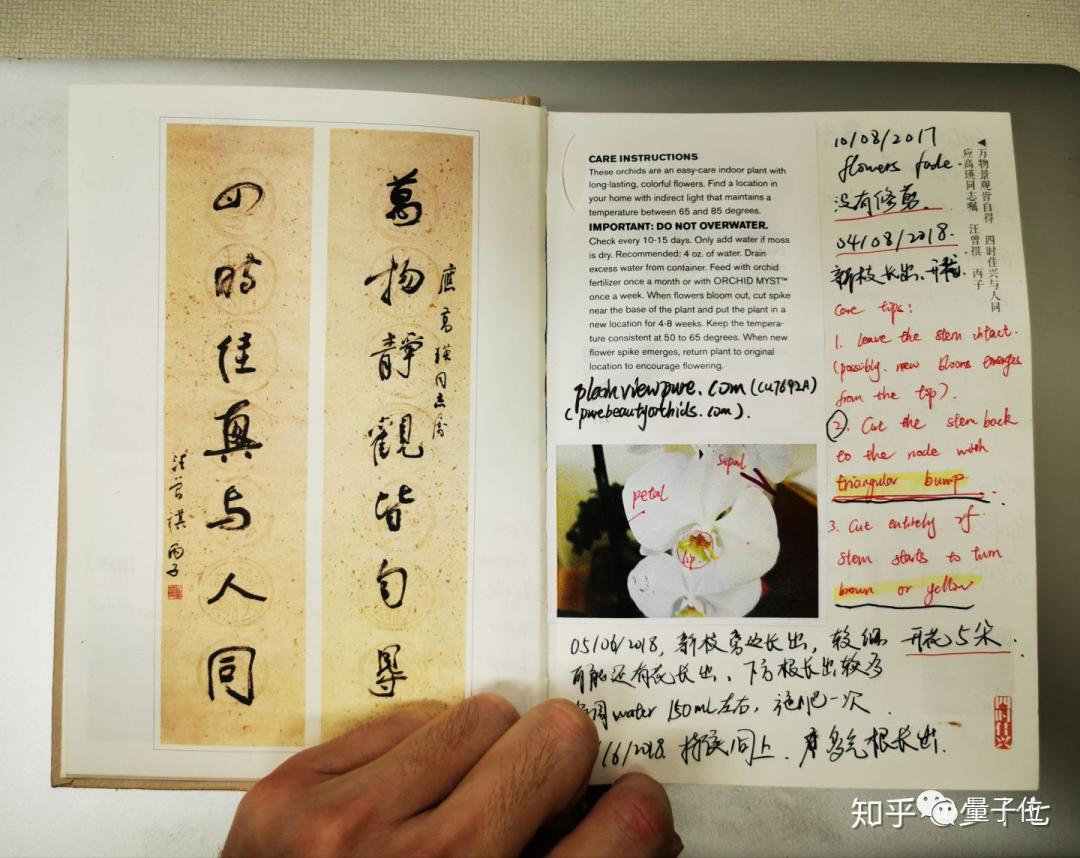 萬物靜觀皆自得
應高瑛同志屬
四時佳興与人同
汪曾祺 丙子
CARE INSTRUCTIONS
These orchids are an easy-care indoor plant with
long-lasting, colorful flowers. Find a location in
your home with indirect light that maintains a
temperature between 65 and 85 degrees.
IMPORTANT: DO NOT OVERWATER.
Check every 10-15 days. Only add water if moss
is dry. Recommended: 4 oz. of water. Drain
excess water from container. Feed with orchid
fertilizer once a month or with ORCHID MYST™
once a week. When flowers bloom out, cut spike
near the base of the plant and put the plant in a
new location for 4-8 weeks. Keep the tempera-
ture consistent at 50 to 65 degrees. When new
flower spike emerges, return plant to original
location to encourage flowering.
(cu7692A)
(purebeautyorchids.com).
petal
sepal
lip
10/08/2017
flowers fade.
没有修剪.
04/08/2018.
新枝长出、开花.
◀万物景观皆自得 四时佳兴与人同
应高瑛同志嘱 汪曾祺 丙子
Care tips:
1. Leave the stem intact.
(possibly. new blooms emerges
from the top).
2. Cut the stem back
to the node with
triangular bump
3. Cut entirely if
stem starts to turn
brown or yellow
05/06/2018, 新枝旁边长出, 较细 开花5朵.
可能还有花长出、下方根长出较多
周water 150mL左右, 施肥一次.
/6/2018. 同上. 多气根长出.
四时佳兴
知乎 量子位